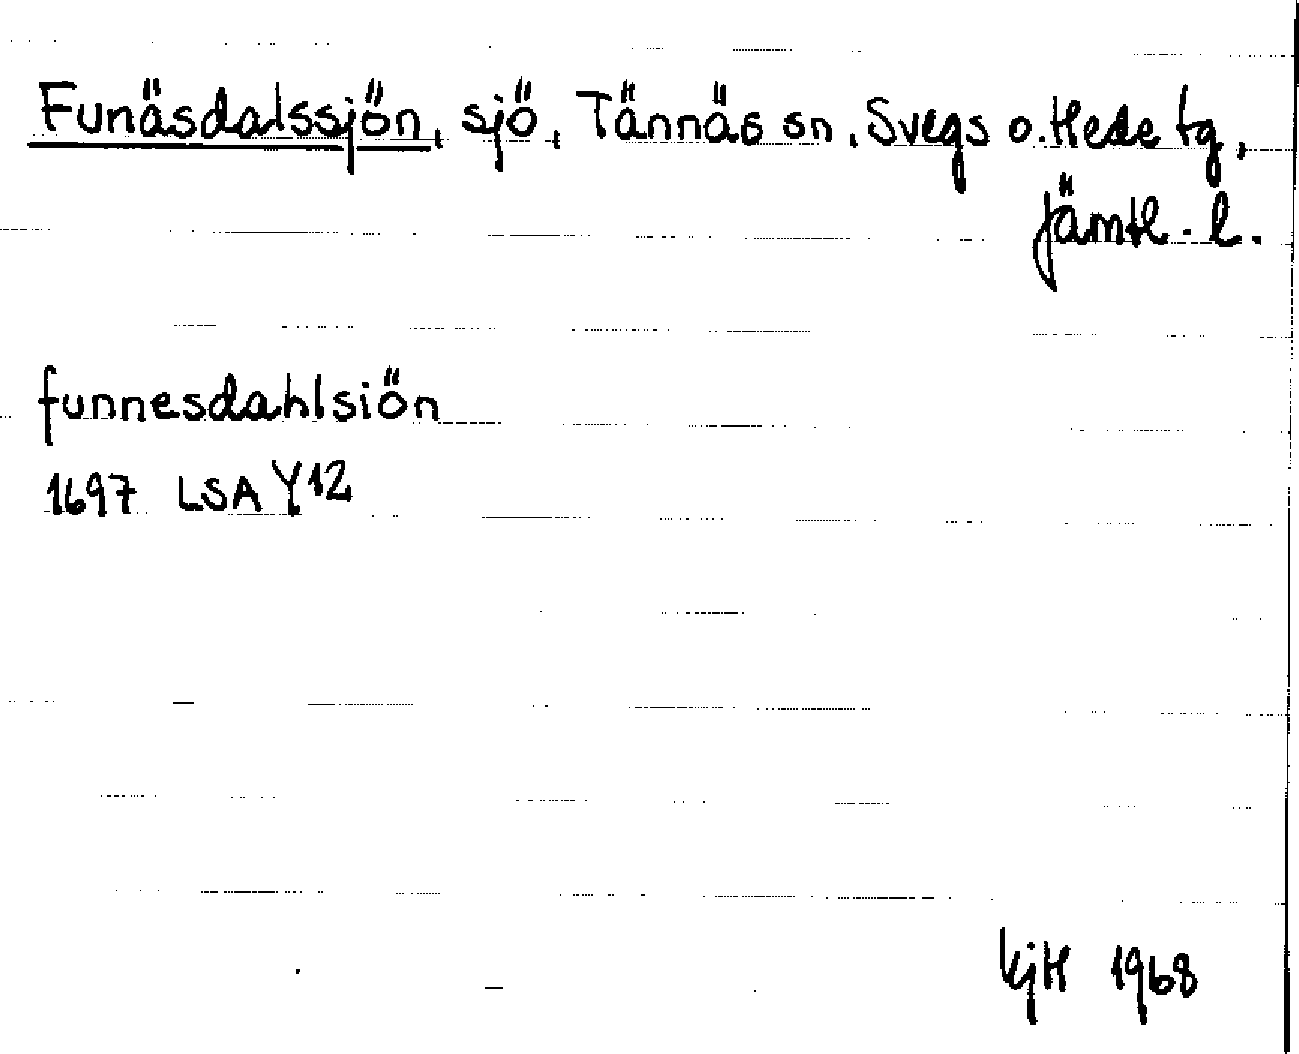 Funäsdalssjön, sjö, Tännäs sn, Svegs o. Hede tg,
Jämtl. l.
funnesdahlsiön
1697 LSA Y12
KjH 1968